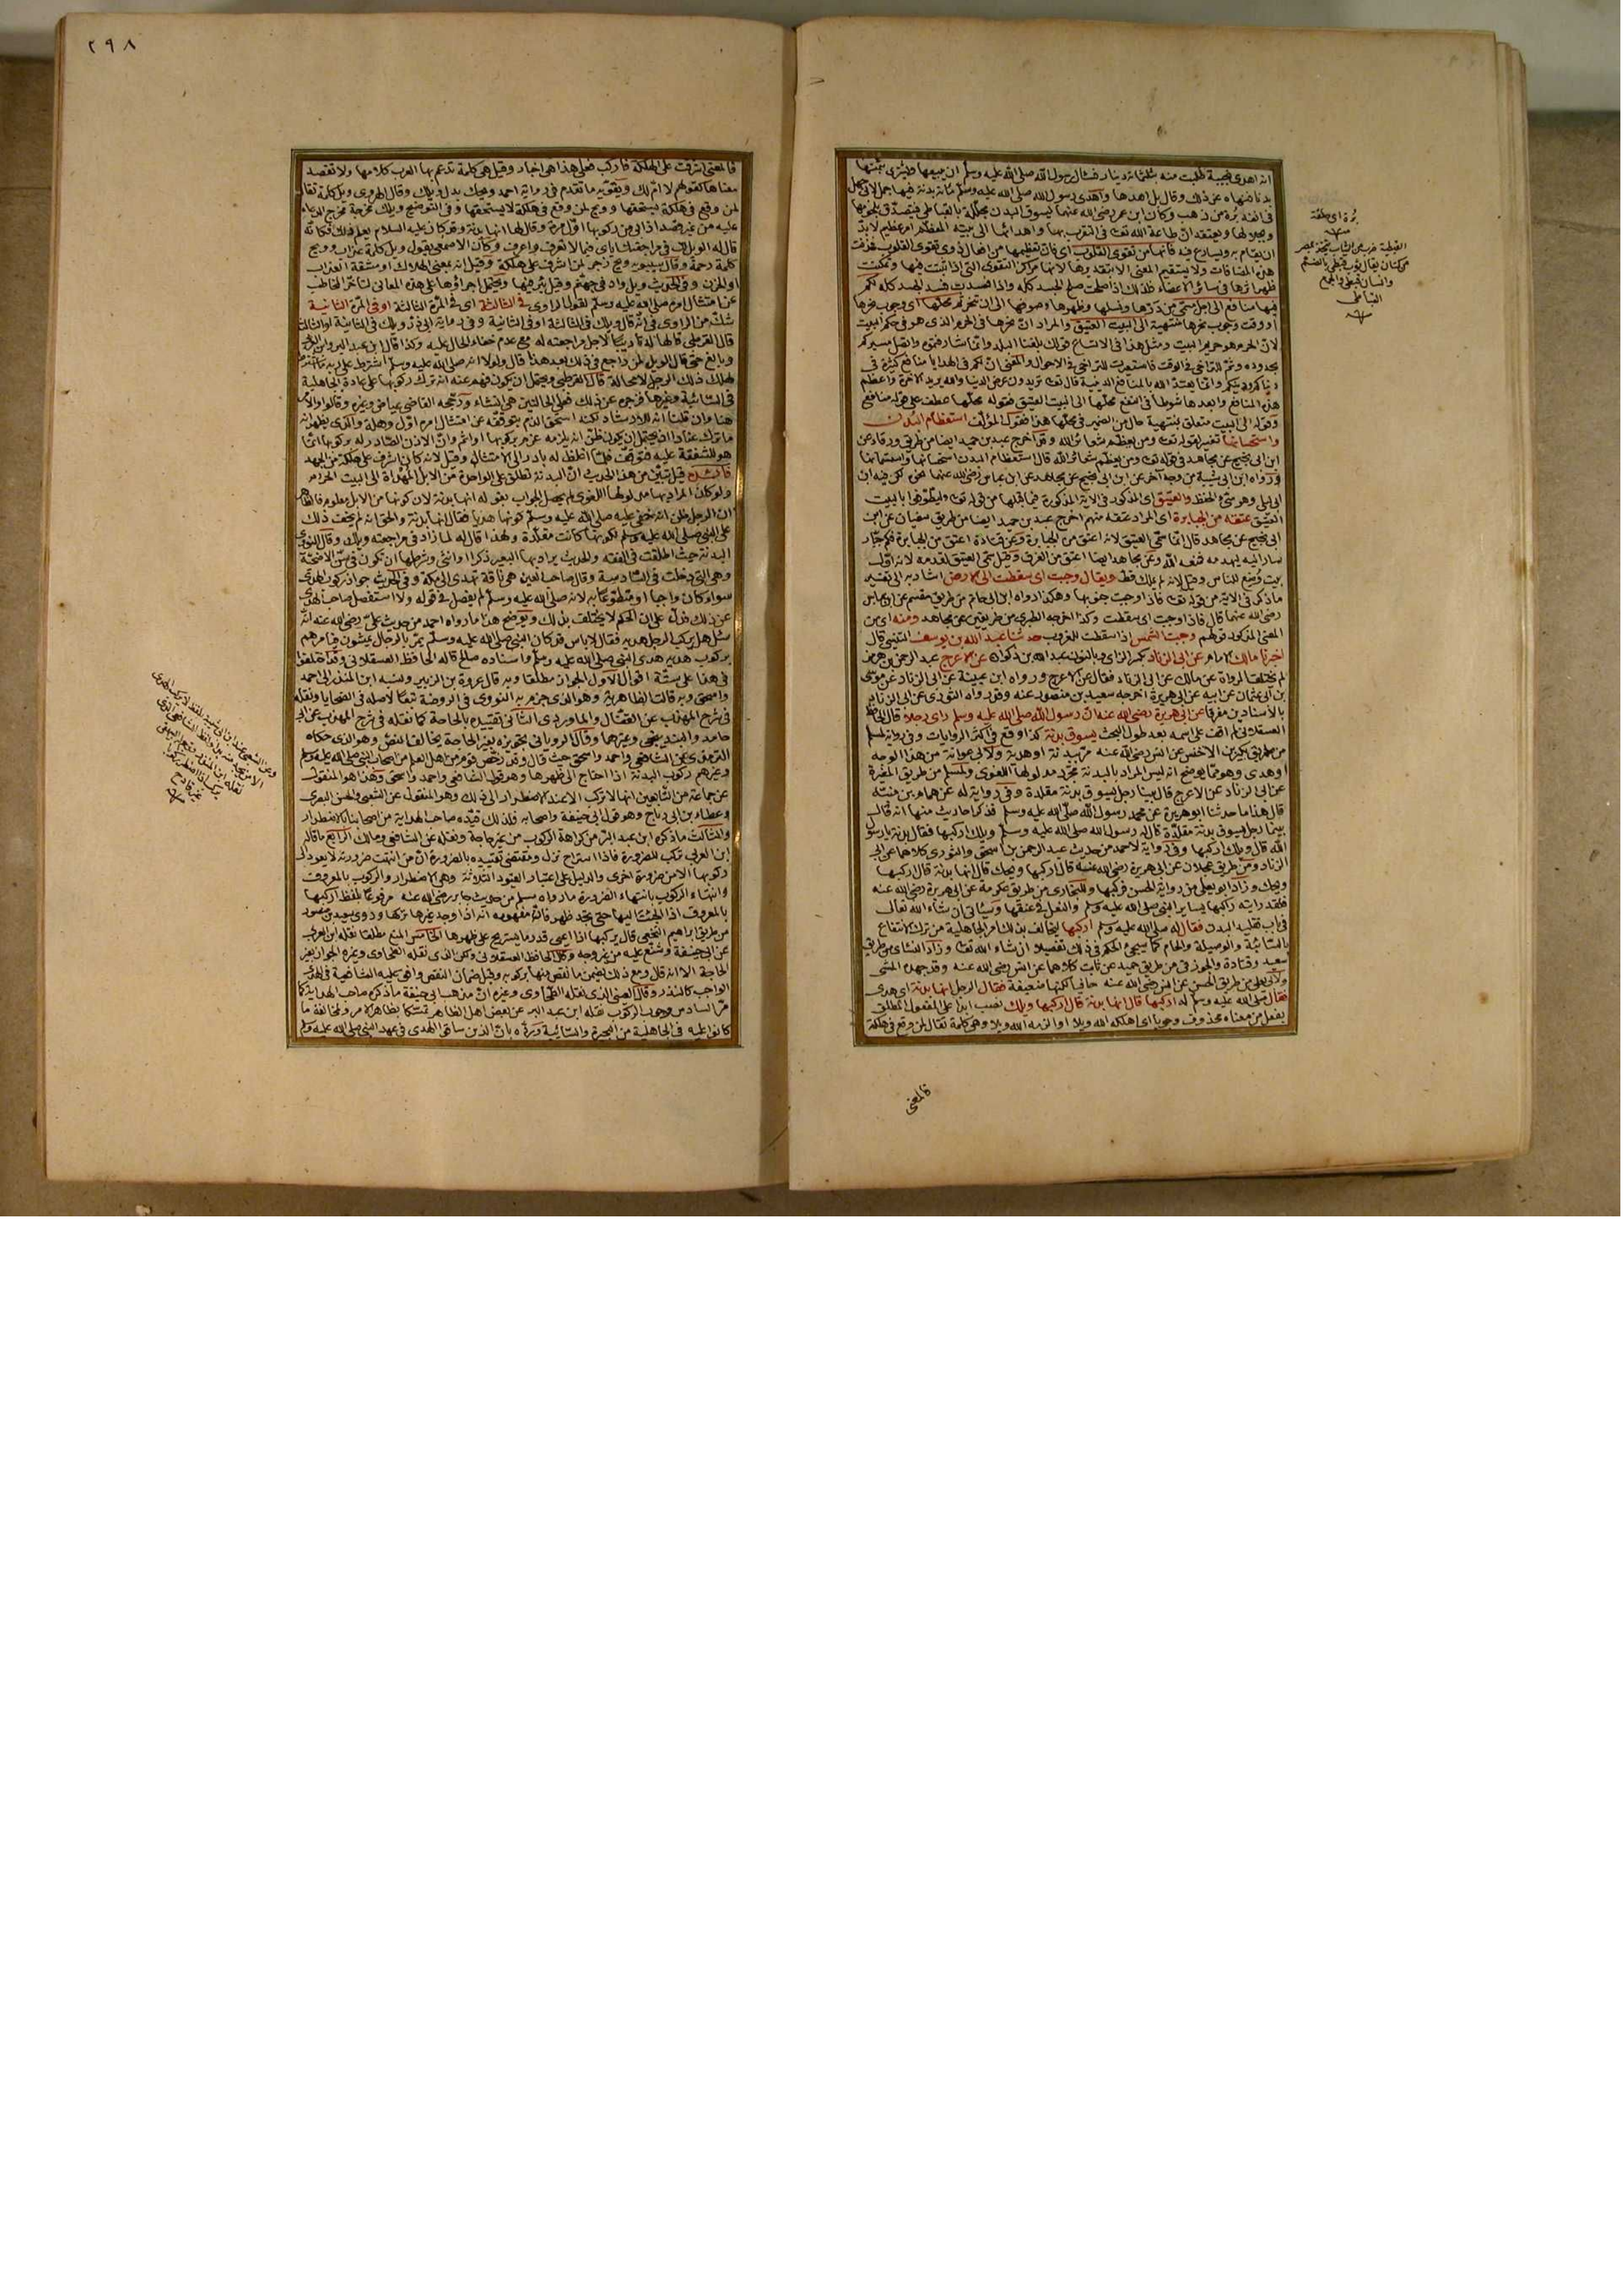 انه اهدى نجيبة طلبت منه بثلثمائة دينار فسأل رسول الله صلى الله عليه وسلم ان يبيعها ويشترى بثمنها
بدنا فنهاه عن ذلك وقال بل اهدها واهدى رسول الله صلى الله عليه وسلم مائة بدنة فيها جمل لابى جهل
فى انفه برة من ذهب وكان ابن عمر رضى الله عنهما يسوق البدن مجللة بالقباطى فيتصدق بلحومها
وبجلالها ويعتقد ان طاعة الله تعالى فى التقرب بها واهدائها الى بيته المعظم امر عظيم لا بد
ان يقام به ويسارع فيه فانها من تقوى القلوب اى فان تعظيمها من افعال ذوى تقوى القلوب فحذفت
هذه المضافات ولا يستقيم المعنى الا بتقديرها لانها مراكز التقوى التى اذا ثبتت فيها وتمكنت
ظهر اثرها فى سائر الاعضاء فلذلك اذا صلحت صلح الجسد كله واذا فسدت فسد الجسد كله لكم
فيها منافع الى اجل مسمى من درها ونسلها وظهرها وصوفها الى ان تنحر ثم محلها اى وجوب نحرها
او وقت وجوب نحرها منتهية الى البيت العتيق والمراد ان نحرها فى الحرم الذى هو فى حكم البيت
لان الحرم هو حريم البيت ومثل هذا فى الاتساع قولك بلغنا البلد وانما شارفتموه واتصل مسيركم
بحدوده وثم للتراخى فى الوقت فاستعيرت للتراخى فى الاحوال والمعنى ان لكم فى الهدايا منافع كثيرة فى
دنياكم ودينكم وانما يعتد الله بالمنافع الدينية قال تعالى تريدون عرض الدنيا والله يريد الآخرة واعظم
هذه المنافع وابعدها شوطا فى النفع محلها الى البيت العتيق فقوله محلها عطف على قوله منافع
وقوله الى البيت متعلق بمنتهية حال من الضمير فى محلها هذا فقول المؤلف استعظام البدن
واستحسانها تفسير لقوله تعالى ومن يعظم شعائر الله وقد اخرج عبد بن حميد ايضا من طريق ورقاء عن
ابن ابى نجيح عن مجاهد فى قوله تعالى ومن يعظم شعائر الله قال استعظام البدن استحسانها واستسمانها
ورواه ابن ابى شيبة من وجه آخر عن ابن ابى نجيح عن مجاهد عن ابن عباس رضى الله عنهما نحوه لكن فيه ابن
ابى ليلى وهو سيئ الحفظ والعتيق اى المذكور فى الآية المذكورة فيما قبلها من قوله تعالى وليطوفوا بالبيت
العتيق عتقه من الجبابرة اى المراد عتقه منهم اخرج عبد بن حميد ايضا من طريق سفيان عن ابن
ابى نجيح عن مجاهد قال انما سمى العتيق لانه اعتق من الجبابرة وعن قتادة اعتق من الجبابرة فكم جبار
سار اليه ليهدمه فمنعه الله وعن مجاهد ايضا اعتق من الغرق وقيل سمى العتيق لقدمه لانه اول
بيت وضع للناس وقيل لانه لم يملك قط ويقال وجبت اى سقطت الى الارض اشار به الى تفسير
ما ذكر فى الآية من قوله تعالى فاذا وجبت جنوبها وهكذا رواه ابن ابى حاتم من طريق مقسم عن ابن عباس
رضى الله عنهما قال فاذا وجبت اى سقطت وكذا اخرجه الطبرى من طريقين عن مجاهد ومنه اى من
المعنى المذكور قولهم وجبت الشمس اذا سقطت للغروب حدثنا عبد الله بن يوسف التنيسى قال
اخبرنا مالك الامام عن ابى الزناد بكسر الزاى وبالنون عبد الله بن ذكوان عن الاعرج عبد الرحمن بن هرمز
لم تختلف الرواة عن مالك عن ابى الزناد فقال عن الاعرج ورواه ابن عيينة عن ابى الزناد عن موسى
بن ابى عثمان عن ابيه عن ابى هريرة اخرجه سعيد بن منصور عنه وقد رواه الثورى عن ابى الزناد
بالاسنادين مفرقا عن ابى هريرة رضى الله عنه ان رسول الله صلى الله عليه وسلم راى رجلا قال الحافظ
العسقلانى لم اقف على اسمه بعد طول البحث يسوق بدنة كذا وقع فى اكثر الروايات وفى رواية لمسلم
من طريق بكير بن الاخنس عن انس رضى الله عنه مر ببدنة او هدية ولابى عوانة من هذا الوجه
او هدى وهو مما يوضح انه ليس المراد بالبدنة مجرد مدلولها اللغوى ولمسلم من طريق المغيرة
عن ابى الزناد عن الاعرج قال بينا رجل يسوق بدنة مقلدة وفى رواية له عن همام بن منبه
قال هذا ما حدثنا ابو هريرة عن محمد رسول الله صلى الله عليه وسلم فذكر احاديث منها انه قال
بينا رجل يسوق بدنة مقلدة قال له رسول الله صلى الله عليه وسلم ويلك اركبها فقال بدنة يا رسول
الله قال ويلك اركبها وفى رواية لاحمد من حديث عبد الرحمن بن اسحق والثورى كلاهما عن ابى
الزناد ومن طريق عجلان عن ابى هريرة رضى الله عنه قال اركبها ويحك قال انها بدنة قال اركبها
ويحك وزاد ابو يعلى من رواية الحسن فركبها وللبخارى من طريق عكرمة عن ابى هريرة رضى الله عنه
فلقد رأيته راكبها يساير النبى صلى الله عليه وسلم والنعل فى عنقها وسيأتى ان شاء الله تعالى
فى باب تقليد البدن فقال له صلى الله عليه وسلم اركبها ليخالف بذلك امر الجاهلية من ترك الانتفاع
بالسائبة والوصيلة والحام كما سيجئ الحكم فى ذلك تفصيلا ان شاء الله تعالى وزاد النسائى من طريق
سعيد وقتادة والجوزقى من طريق حميد عن ثابت كلاهما عن انس رضى الله عنه وقد جهده المشى
ولابى يعلى من طريق الحسن عن انس رضى الله عنه حافيا لكنها ضعيفة فقال الرجل انها بدنة اى هدى
فقال صلى الله عليه وسلم له اركبها قال انها بدنة قال اركبها ويلك نصب ابدا على المفعول المطلق
بفعل من معناه محذوف وجوبا اى اهلكه الله ويلا او الزمه الله ويلا وهى كلمة تقال لمن وقع فى هلكة
فالمعنى
برة اى حلقة
القبطية ضرب من الثياب تتخذ بمصر
من كتان يقال ثوب قبطى بالضم
وانسان قبطى والجمع
القباطى
٢٩٨
فالمعنى اشرفت على الهلكة فاركب فعلى هذا هى اخبار وقيل هى كلمة تدعم بها العرب كلامها ولا تقصد
معناها كقولهم لا ام لك ويقويه ما تقدم فى رواية احمد ويحك بدل ويلك وقال الهروى ويل كلمة تقال
لمن وقع فى هلكة يستحقها وويح لمن وقع فى هلكة لا يستحقها وفى التوضيح ويلك مخرجة مخرج الدعاء
عليه من غير قصد اذ ابى من ركوبها اول مرة وقال له انها بدنة وقد كان عليه السلام يعلم ذلك فكانه
قال له الويل لك فى مراجعتك اياى فيما لا تعرف واعرف وكان الاصمعى يقول ويل كلمة عذاب وويح
كلمة رحمة وقال سيبويه ويح زجر لمن اشرف على هلكة وقيل انه بمعنى الهلاك او مشقة العذاب
او الحزن وفى الحديث ويل واد فى جهنم وقيل بئر فيها ويحتمل اجراؤها على هذه المعانى لتأخر المخاطب
عن امتثال امره صلى الله عليه وسلم لقول الراوى فى الثالثة اى فى المرة الثالثة او فى المرة الثانية
شك من الراوى فى انه قال ويلك فى الثالثة او فى الثانية وفى رواية ابى ذر ويلك فى الثانية او الثالثة
قال القرطبى قالها له تأديبا لاجل مراجعته له مع عدم خفاء الحال عليه وكذا قال ابن عبد البر وابن العربى
وبالغ حتى قال الويل لمن راجع فى ذلك بعد هذا قال ولولا انه صلى الله عليه وسلم اشترط على ربه ما اشترط
لهلك ذلك الرجل لا محالة قال القرطبى ويحتمل ان يكون فهم عنه انه ترك ركوبها على عادة الجاهلية
فى السائبة وغيرها فزجره عن ذلك فعلى الحالتين هى انشاء ورجحه القاضى عياض وغيره وقالوا والامر
هنا وان قلنا انه للارشاد لكنه استحق الذم بتوقفه عن امتثال امره اول وهلة والذى يظهر انه
ما ترك عنادا اذ يحتمل ان يكون ظن انه يلزمه غرم بركوبها او اثم وان الاذن الصادر له بركوبها انما
هو للشفقة عليه فتوقف فلما اغلظ له بادر الى الامتثال وقيل لانه كان اشرف على هلكة من الجهد
فائدة قيل تبين من هذا الحديث ان البدنة تطلق على الواحدة من الابل المهداة الى البيت الحرام
ولو كان المراد بها مدلولها اللغوى لم يحصل الجواب بقوله انها بدنة لان كونها من الابل معلوم فالظاهر
ان الرجل ظن انه خفى عليه صلى الله عليه وسلم كونها هديا فقال انها بدنة والحق انه لم يخف ذلك
على النبى صلى الله عليه وسلم لكونها كانت مقلدة ولهذا قال له لما زاد فى مراجعته ويلك وقال النووى
البدنة حيث اطلقت فى الفقه والحديث يراد بها البعير ذكرا او انثى وشرطها ان تكون فى سن الاضحية
وهى التى دخلت فى السادسة وقال صاحب العين هى ناقة تهدى الى مكة وفى الحديث جواز ركوب الهدى
سواء كان واجبا او متطوعا به لانه صلى الله عليه وسلم لم يفصل فى قوله ولا استفصل صاحب الهدى
عن ذلك فدل على ان الحكم لا يختلف بذلك ويوضح هذا ما رواه احمد من حديث على رضى الله عنه انه
سئل هل يركب الرجل هديه فقال لا باس قد كان النبى صلى الله عليه وسلم يمر بالرجال يمشون فيامرهم
بركوب هديه هدى النبى صلى الله عليه وسلم واسناده صالح قاله الحافظ العسقلانى وقد اختلفوا
فى هذا على ستة اقوال الاول الجواز مطلقا وبه قال عروة بن الزبير ونسبه ابن المنذر الى احمد
واسحق وبه قالت الظاهرية وهو الذى جزم به النووى فى الروضة تبعا لاصله فى الضحايا ونقله
فى شرح المهذب عن القفال والماوردى الثانى تقييده بالحاجة كما نقله فى شرح المهذب عن ابى
حامد والبندنيجى وغيرهما وقال الرويانى تجويزه بغير الحاجة يخالف النص وهو الذى حكاه
الترمذى عن الشافعى واحمد واسحق حيث قال وقد رخص قوم من اهل العلم من اصحاب النبى صلى الله عليه وسلم
وغيرهم ركوب البدنة اذا احتاج الى ظهرها وهو قول الشافعى واحمد واسحق وهذا هو المنقول
عن جماعة من التابعين انها لا تركب الا عند الاضطرار الى ذلك وهو المنقول عن الشعبى والحسن البصرى
وعطاء بن ابى رباح وهو قول ابى حنيفة واصحابه فلذلك قيده صاحب الهداية من اصحابنا بالاضطرار
والثالث ما ذكره ابن عبد البر من كراهة الركوب من غير حاجة ونقله عن الشافعى ومالك الرابع ما قاله
ابن العربى تركب للضرورة فاذا استراح نزل ومقتضى تقييده بالضرورة ان من انتهت ضرورته لا يعود الى
ركوبها الا من ضرورة اخرى والدليل على اعتبار القيود الثلاثة وهى الاضطرار والركوب بالمعروف
وانتهاء الركوب بانتهاء الضرورة ما رواه مسلم من حديث جابر رضى الله عنه مرفوعا بلفظ اركبها
بالمعروف اذا الجئت اليها حتى تجد ظهرا فان مفهومه انه اذا وجد غيرها تركها وروى سعيد بن منصور
من طريق ابراهيم النخعى قال يركبها اذا اعيى قدر ما يستريح على ظهرها الخامس المنع مطلقا نقله ابن العربى
عن ابى حنيفة وشنع عليه من غير وجه وقال الحافظ العسقلانى ولكن الذى نقله الطحاوى وغيره الجواز بقدر
الحاجة الا انه قال ومع ذلك يضمن ما نقص منها بركوبه وقيل ضمان النقص وافق عليه الشافعية فى الهدى
الواجب كالنذر وقال العينى الذى نقله الطحاوى وغيره ان مذهب ابى حنيفة ما ذكره صاحب الهداية كما
مر السادس وجوب الركوب نقله ابن عبد البر عن بعض اهل الظاهر تمسكا بظاهر الامر ولمخالفة ما
كانوا عليه فى الجاهلية من البحيرة والسائبة ورد ه بان الذين ساقوا الهدى فى عهد النبى صلى الله عليه وسلم